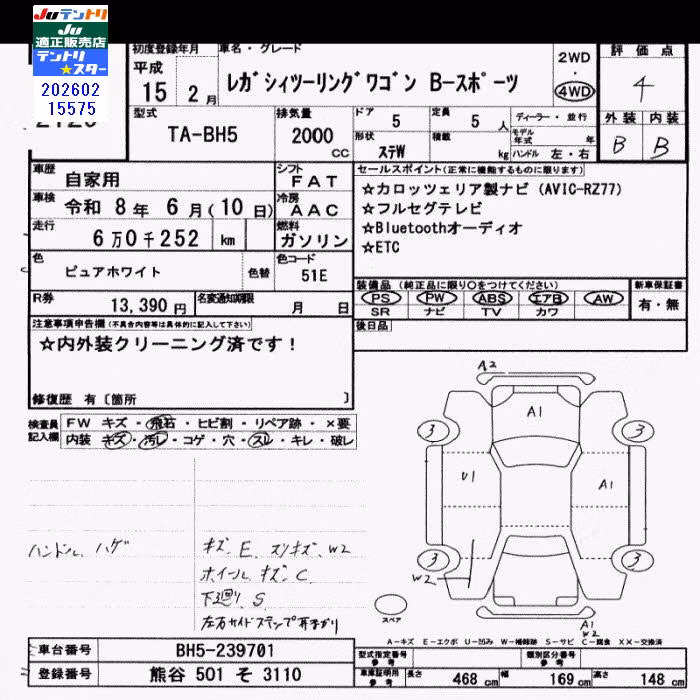 Juテントリ
Ju
適正販売店
テントリ
★スター
202602
15575
初度登録年月
平成
15 2 月
車名・グレード
レガシィツーリングワゴン B-スポーツ
2WD
・
4WD
評価点
4
外装 内装
B B
型式
TA-BH5
排気量
2000
CC
ドア
5
定員
5 人
形状
ステW
積載
kg
ディーラー・並行
モデル年式 年
ハンドル 左・右
車歴
自家用
シフト
FAT
車検
令和 8 年 6 月(10 日)
冷房
AAC
走行
6 万0 千252 km
燃料
ガソリン
色
ピュアホワイト
色替
色コード
51E
R券
13,390 円
名変通知期限
月 日
セールスポイント(正常に機能するものに限ります)
☆カロッツェリア製ナビ(AVIC-RZ77)
☆フルセグテレビ
☆Bluetoothオーディオ
☆ETC
装備品 (純正品に限り○をつけてください)
PS PW ABS エアB AW
SR ナビ TV カワ
新車保証書
有・無
後日品
注意事項申告欄(不具合内容等は具体的に記入して下さい)
☆内外装クリーニング済です!
修復歴 有〔箇所 〕
検査員
記入欄
FW キズ・飛石・ヒビ割・リペア跡・×要
内装 キズ・汚レ・コゲ・穴・スレ・キレ・破レ
ハンドル、ハゲ
キズ、E、スリキズ、W2
ホイール、キズ、C
下廻り、S
左右サイドステップ耳まがり
A2
A1
3 3
U1
A1
3 3
W2
スペア
A1
W2
A-キズ E-エクボ U-凹み W-補修跡 S-サビ C-腐食 XX-交換済
車台番号
BH5-239701
登録番号
熊谷 501 そ 3110
型式指定番号
参考
類別区分番号
参考
車庫証明用
参考
長さ 468 cm
幅 169 cm
高さ 148 cm